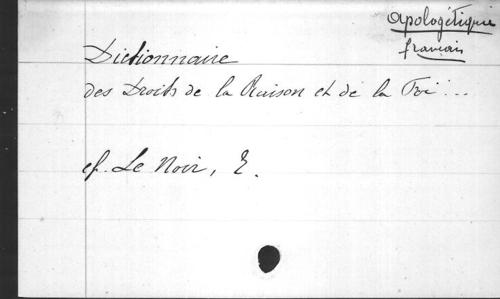 Apologétique
français
Dictionnaire
des Droits de la Raison et de la Foi...
cf. Le Noir, E.